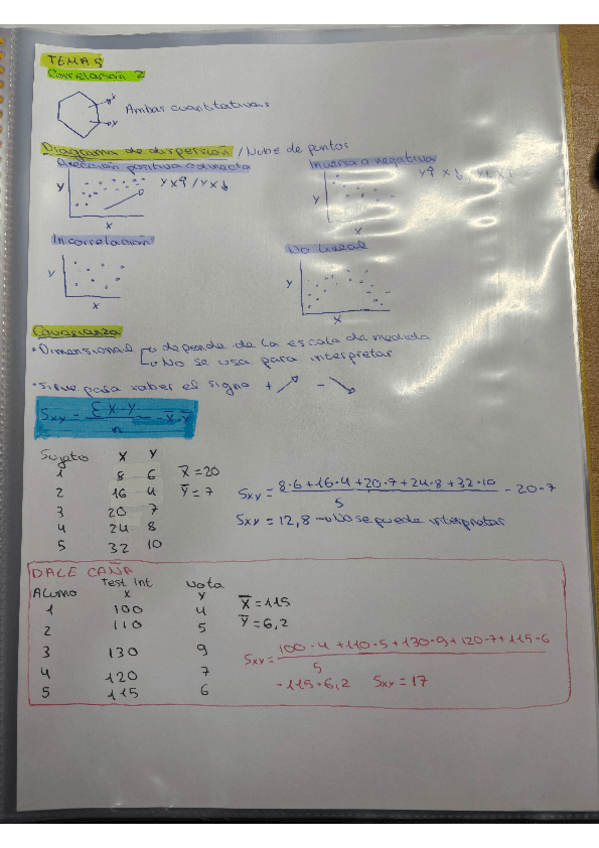 TEMA 5
Correlación 2
x
y
Ambas cuantitativas
Diagrama de dispersión / Nube de puntos
Dirección positiva o directa
Y
X
Inversa o negativa
Y
X
Incorrelación
Y
X
No lineal
Y
X
Covarianza
• Dimensional
→ depende de la escala de medida
→ No se usa para interpretar
• Sirve para saber el signo + ↗ - ↘
Sxy = Σ X·Y / n - X̄·Ȳ
Sujeto X Y
1 8 6 X̄ = 20
2 16 4 Ȳ = 7
3 20 7
4 24 8
5 32 10
Sxy = 8·6+16·4+20·7+24·8+32·10 / 5 - 20·7
Sxy = 12,8 → No se puede interpretar
DALE CAÑA
Alumno Test Int X Nota Y
1 100 4 X̄ = 115
2 110 5 Ȳ = 6,2
3 130 9
4 120 7
5 115 6
Sxy = 100·4 + 110·5 + 130·9 + 120·7 + 115·6 / 5
- 115·6,2 Sxy = 17